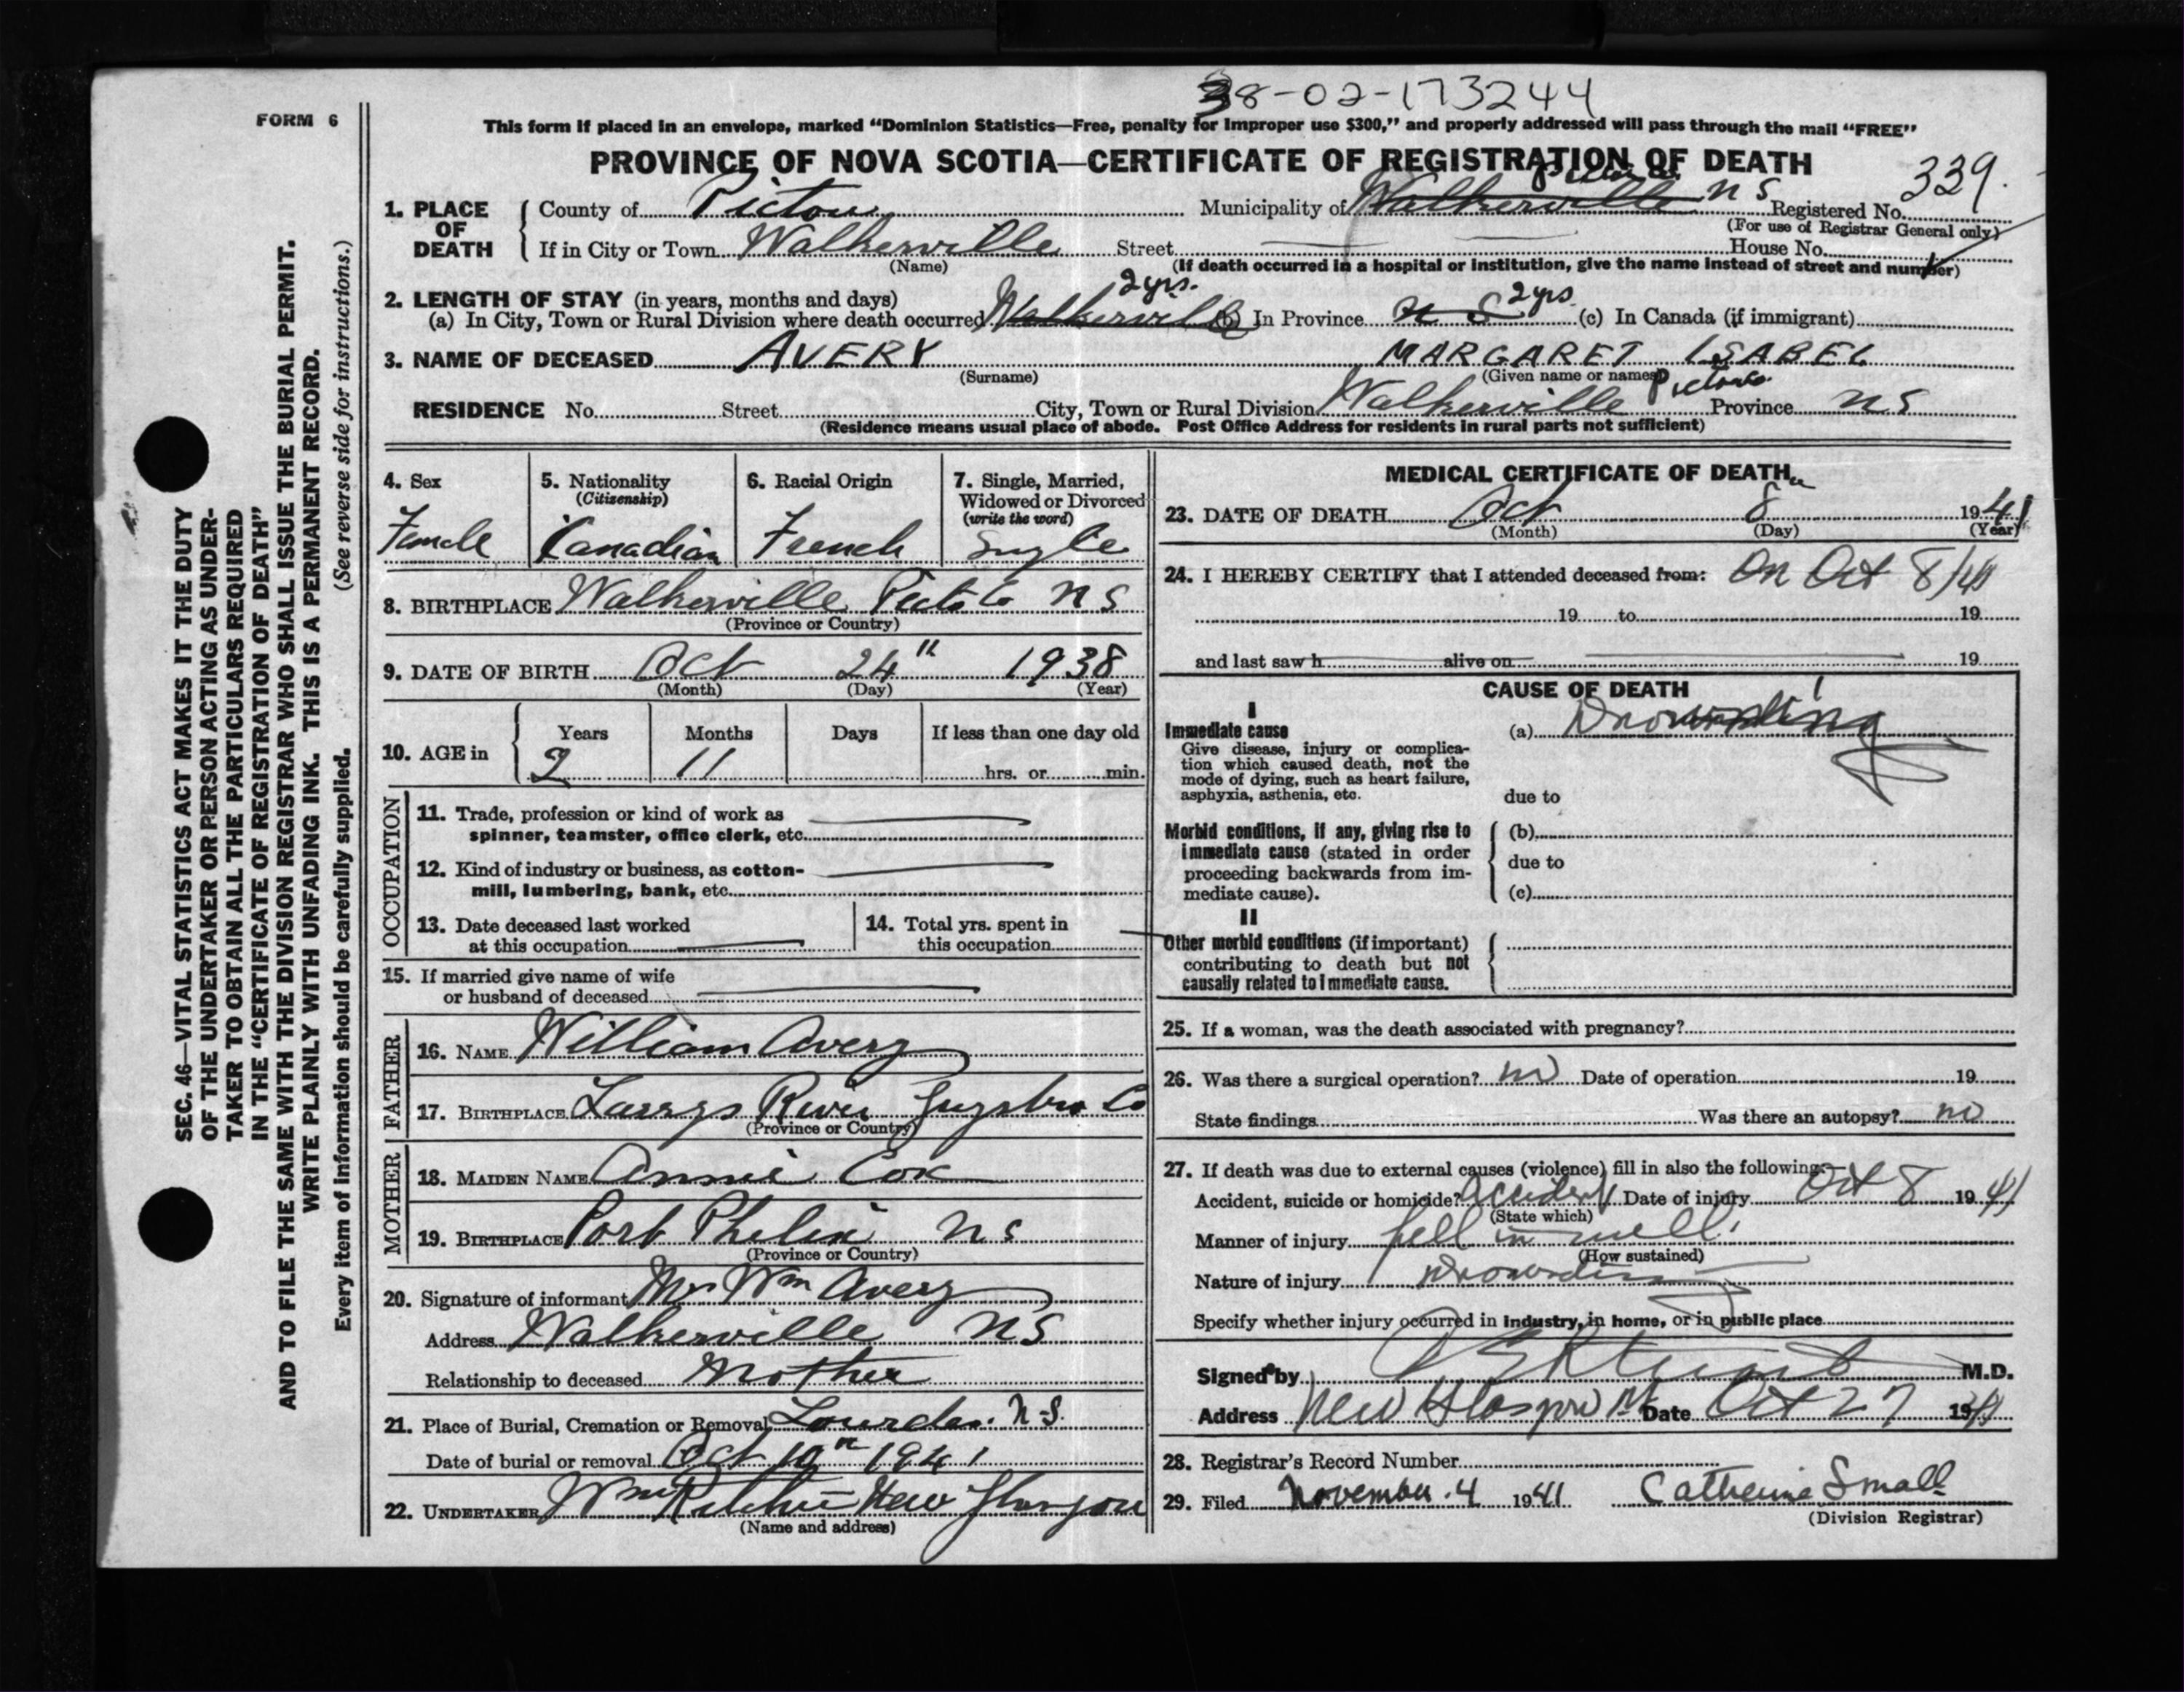 38-02-173244
FORM 6
This form if placed in an envelope, marked “Dominion Statistics—Free, penalty for improper use $300,” and properly addressed will pass through the mail “FREE”
PROVINCE OF NOVA SCOTIA—CERTIFICATE OF REGISTRATION OF DEATH
339.
1. PLACE OF DEATH
County of Pictou Municipality of Walkerville N S Registered No.
(For use of Registrar General only)
If in City or Town Walkerville Street House No.
(Name) (If death occurred in a hospital or institution, give the name instead of street and number)
2. LENGTH OF STAY (in years, months and days) 2 yrs. 2 yrs
(a) In City, Town or Rural Division where death occurred Walkerville (b) In Province N S (c) In Canada (if immigrant)
3. NAME OF DECEASED AVERY MARGARET ISABEL
(Surname) (Given name or names)
RESIDENCE No. Street City, Town or Rural Division Walkerville Pictou Co Province N S
(Residence means usual place of abode. Post Office Address for residents in rural parts not sufficient)
4. Sex Female
5. Nationality (Citizenship) Canadian
6. Racial Origin French
7. Single, Married, Widowed or Divorced (write the word) Single
8. BIRTHPLACE Walkerville Pictou Co N S
(Province or Country)
9. DATE OF BIRTH Oct 24th 1938
(Month) (Day) (Year)
10. AGE in Years Months Days If less than one day old
2 11 hrs. or min.
OCCUPATION
11. Trade, profession or kind of work as
spinner, teamster, office clerk, etc.
12. Kind of industry or business, as cotton-
mill, lumbering, bank, etc.
13. Date deceased last worked
at this occupation
14. Total yrs. spent in
this occupation
15. If married give name of wife
or husband of deceased
FATHER
16. NAME William Avery
17. BIRTHPLACE Larrys River Guysboro Co
(Province or Country)
MOTHER
18. MAIDEN NAME Annie
19. BIRTHPLACE Port Phelix N S
(Province or Country)
20. Signature of informant Mrs Wm Avery
Address Walkerville N S
Relationship to deceased Mother
21. Place of Burial, Cremation or Removal Lourdes. N-S.
Date of burial or removal Oct 10th 1941
22. UNDERTAKER Wm Ritchie New Glasgow
(Name and address)
MEDICAL CERTIFICATE OF DEATH
23. DATE OF DEATH Oct 8 1941
(Month) (Day) (Year)
24. I HEREBY CERTIFY that I attended deceased from: On Oct 8/41
19 to 19
and last saw h alive on 19
CAUSE OF DEATH
I
Immediate cause (a) Drowning
Give disease, injury or complica-
tion which caused death, not the
mode of dying, such as heart failure,
asphyxia, asthenia, etc. due to
Morbid conditions, if any, giving rise to (b)
immediate cause (stated in order due to
proceeding backwards from im-
mediate cause). (c)
II
Other morbid conditions (if important)
contributing to death but not
causally related to immediate cause.
25. If a woman, was the death associated with pregnancy?
26. Was there a surgical operation? no Date of operation 19
State findings Was there an autopsy? no
27. If death was due to external causes (violence) fill in also the following:—
Accident, suicide or homicide? Accident Date of injury Oct 8 1941
(State which)
Manner of injury fell in well.
(How sustained)
Nature of injury Drowning
Specify whether injury occurred in industry, in home, or in public place
Signed by M.D.
Address New Glasgow NS Date Oct 27 1941
28. Registrar's Record Number
29. Filed November 4 1941 Catherine Small
(Division Registrar)
SEC. 46—VITAL STATISTICS ACT MAKES IT THE DUTY
OF THE UNDERTAKER OR PERSON ACTING AS UNDER-
TAKER TO OBTAIN ALL THE PARTICULARS REQUIRED
IN THE “CERTIFICATE OF REGISTRATION OF DEATH”
AND TO FILE THE SAME WITH THE DIVISION REGISTRAR WHO SHALL ISSUE THE BURIAL PERMIT.
WRITE PLAINLY WITH UNFADING INK. THIS IS A PERMANENT RECORD.
Every item of information should be carefully supplied. (See reverse side for instructions.)